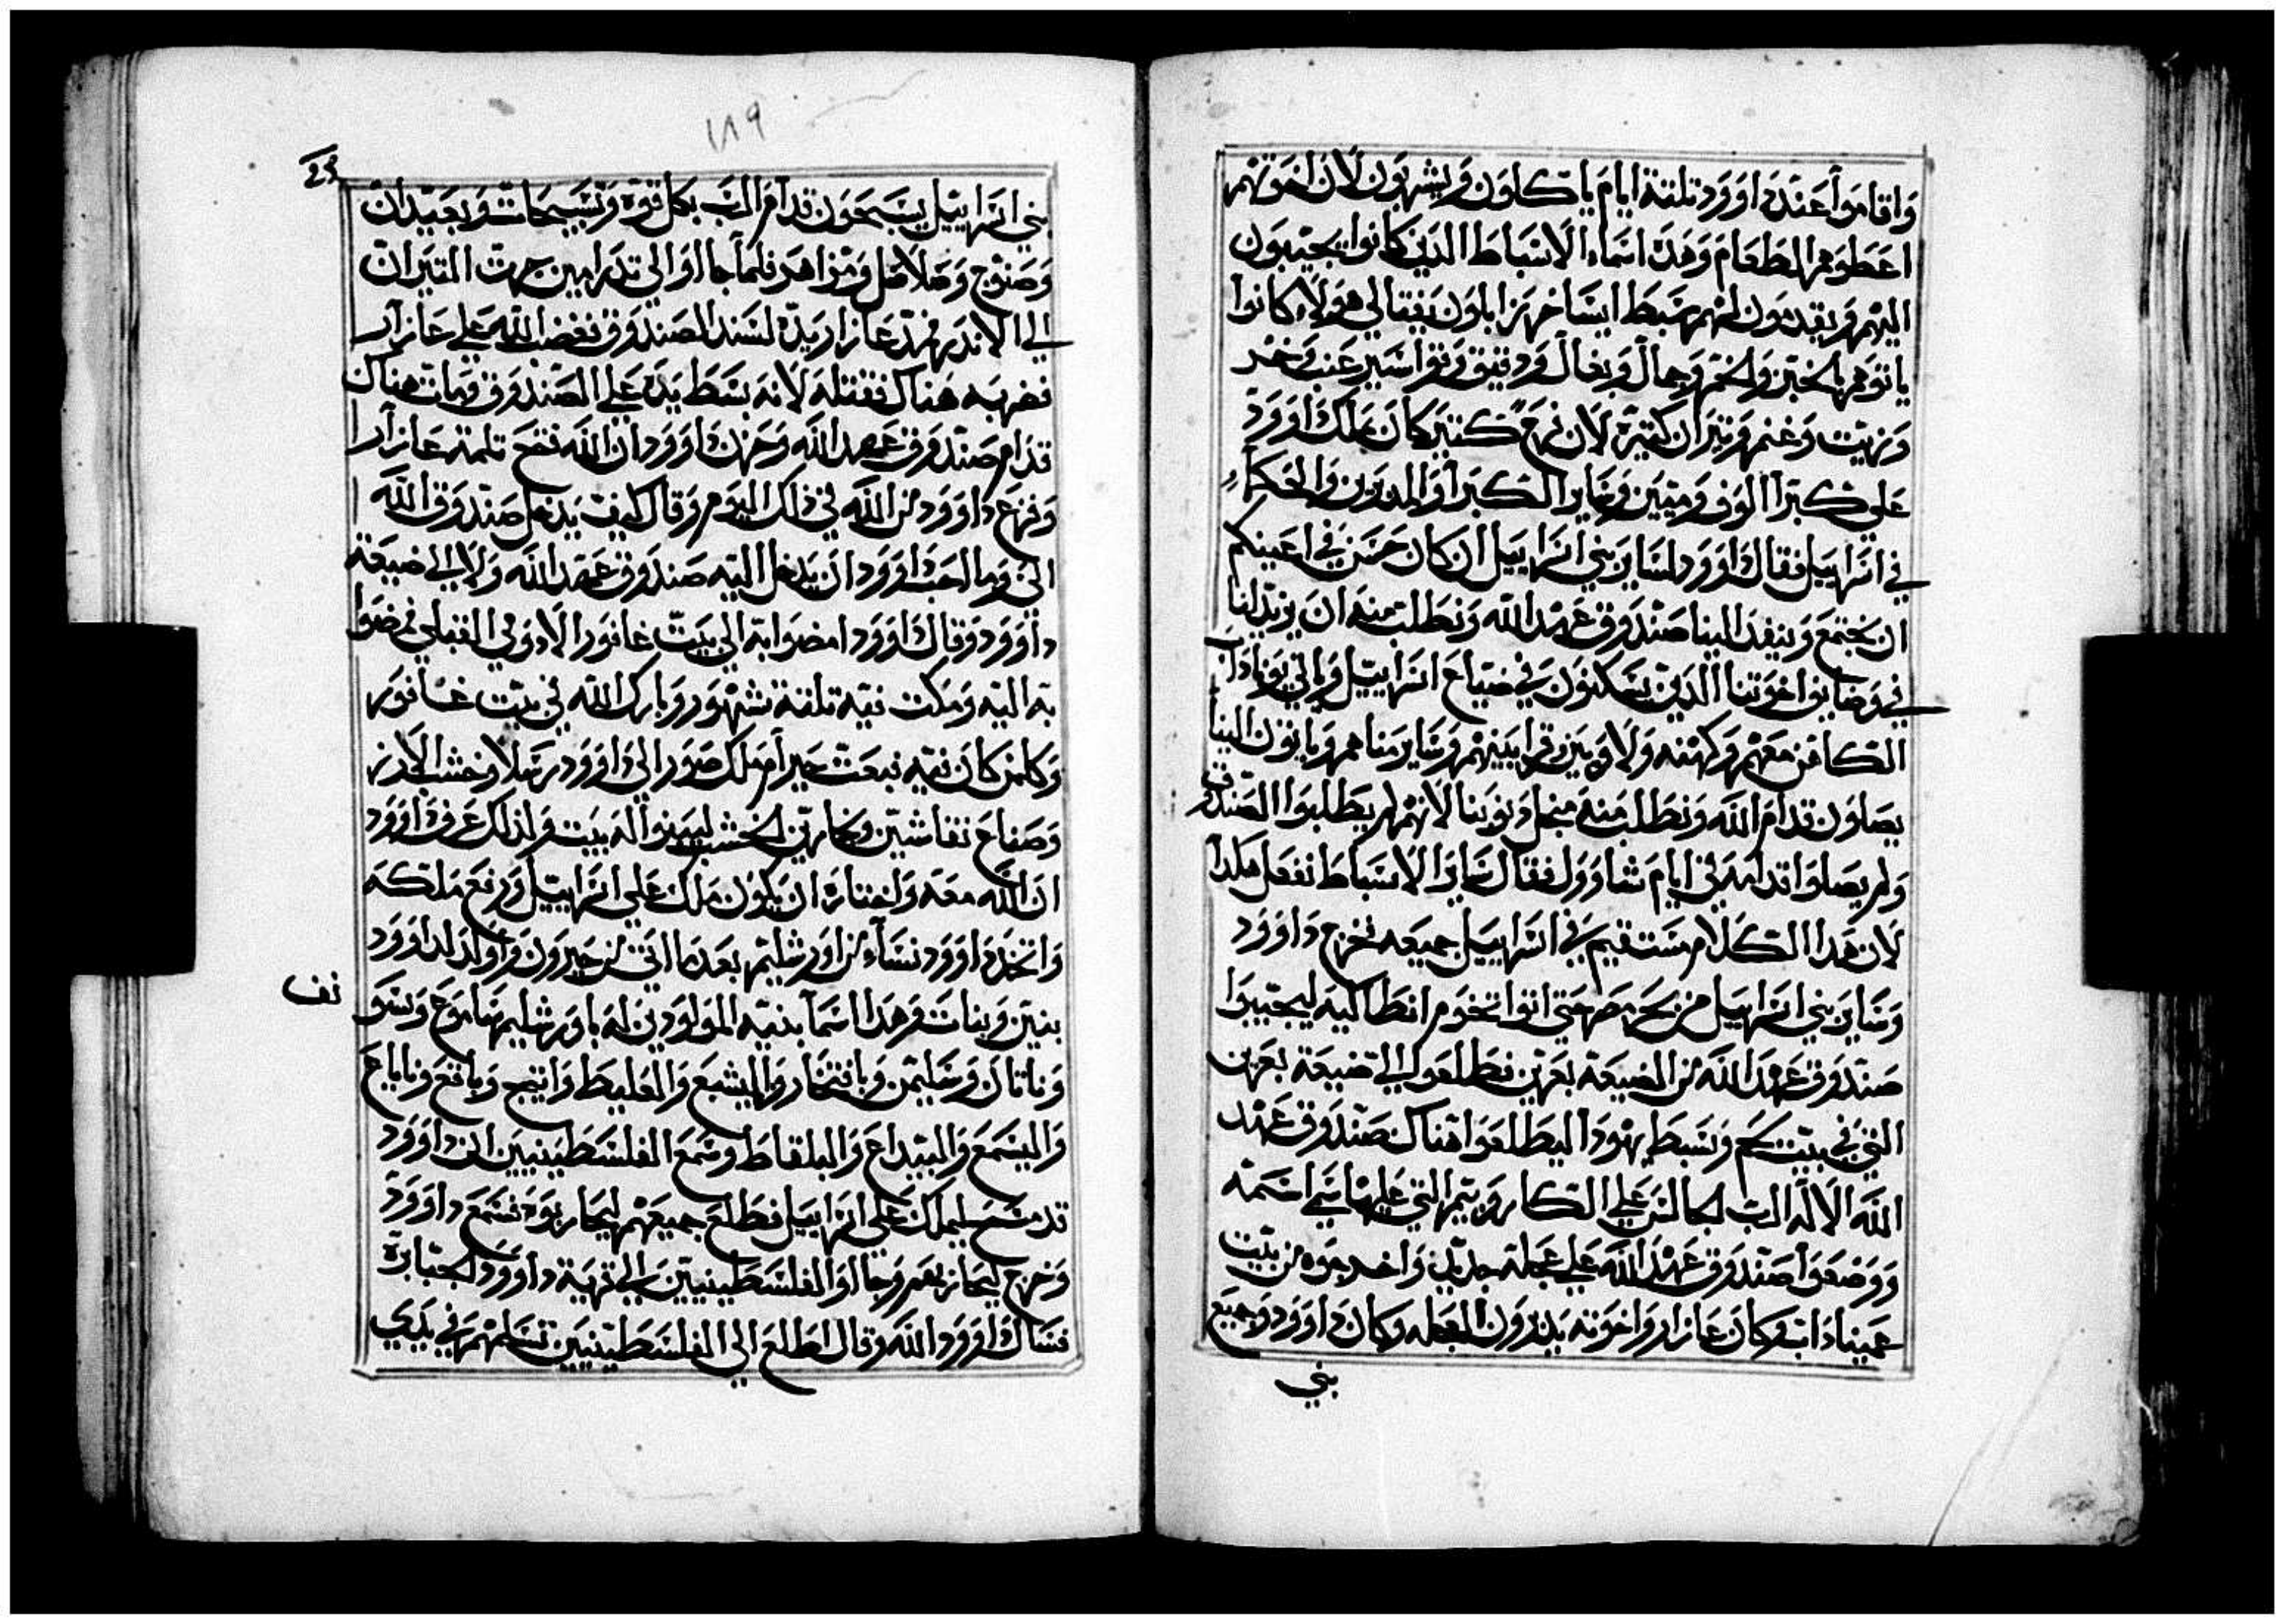 واقاموا عند داوود تلتة ايام ياكلون ويشربون لان اخوتهم
اعطوهم الطعام وهذه اسماء الاسباط الذين كانوا يجيبون
اليهم ويقدمون لهم سبط ايساخر زابلون نفتالي هولاء كانوا
ياتوهم بالخبز والخمر وجمال وبغال ودقيق وقواسير عنب وخمر
وزيت وغنم وتيران كتيرة لان فرح كتير كان بملك داوود
علي كبرا الوف وميتين وساير الكبرا والمدبرين والحكماء
في اسراييل فقال داوود لساير بني اسراييل ان كان حسن في اعينكم
ان نجتمع وينفذ الينا صندوق عهد الله ونطلب منه ان يرتد لنا
في وضايف اخوتنا الذين يسكنون في ضياع اسراييل وياتي
الكاهن معهم وكهنه ولاويين وقرايبهم وساير منا هم وياتون الينا
يصلون قدام الله ونطلب منه من اجل دنوبنا لانهم لم يطلبوا الصندوق
ولم يصلوا قدامه في ايام شاوول فقال ساير الاسباط نفعل هكدا
لان هدا الكلام مستقيم في اسراييل جميعه فخرج داوود
وساير بني اسراييل من بحر مصر حتي اتوا تخوم انطاكيه ليجيبوا
صندوق عهد الله من الضيعة بعرين فطلعوا الي ضيعة بعرين
التي في بيت وسبط يهودا ليطلعوا هناك صندوق عهد
الله الاله الرب الجالس علي الكاروبيم التي عليها سمي اسمه
ووضعوا صندوق عهد الله علي عجلة جديده واخرجوه من بيت
عمينادات وكان عازار واخوته يدبرون العجله وكان داوود وجميع
بني
١٨٩
بني اسراييل يسبحون قدام الرب بكل قوة وتسبيحات وبعيدان
وصنوج وصلاصل ومزاهر فلما جااوا الي تدرامين جرت التيران
الي الاندر فمد عازار يده لسند الصندوق فغضب الله علي عازار
فضربه هناك فقتله لانه بسط يده علي الصندوق ومات هناك
قدام صندوق عهد الله وحزن داوود ان الله فتح تلمة عازار
وفزع داوود من الله في ذلك اليوم وقال كيف يدخل صندوق الله
الي وما احب داوود ان يدخل اليه صندوق عهد الله ولا الي ضيعة
داوود وقال داوود امضوا به الي بيت عافور الادوني فمضوا
به اليه ومكت فيه تلتة شهور وبارك الله في بيت عافور
وكلمن كان فيه فبعت حيرام ملك صور الي داوود رسلا وخشب الارز
وصناع نقاشين ونجارين الخشب ليبنوا له بيت ولذلك عرف داوود
ان الله معه واختاره ان يكون ملك علي اسراييل ورفع ملكه
واتخذ داوود نساء من اورشليم بعدما اتي من حبرون واولد لداوود
بنين وبنات وهدا اسما بنيه المولودين له باورشليم ساموع وسو
وناتان وسليمن وبانتحار واليشع والفليط وانتج وبافع وناباع
واليسمع والبيداع والبلفاط وسمع الفلسطينيين ان داوود
قد مسح ليملك علي اسراييل فطلع جميعهم ليحاربوه فسمع داوود
وخرج ليحاربهم وجااوا الفلسطينيين الي قرية داوود الجبابرة
فسال داوود الله وقال اطلع الي الفلسطينيين تسلمهم في يدي